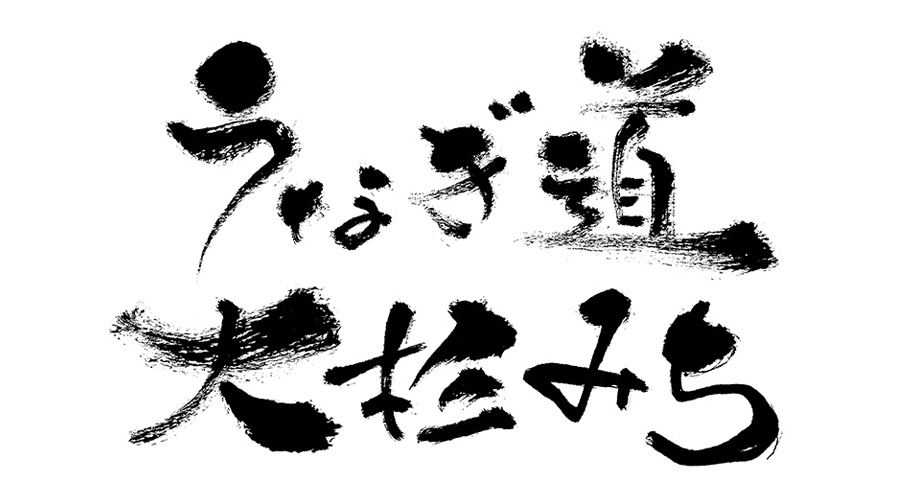 うなぎ道
大杉みち